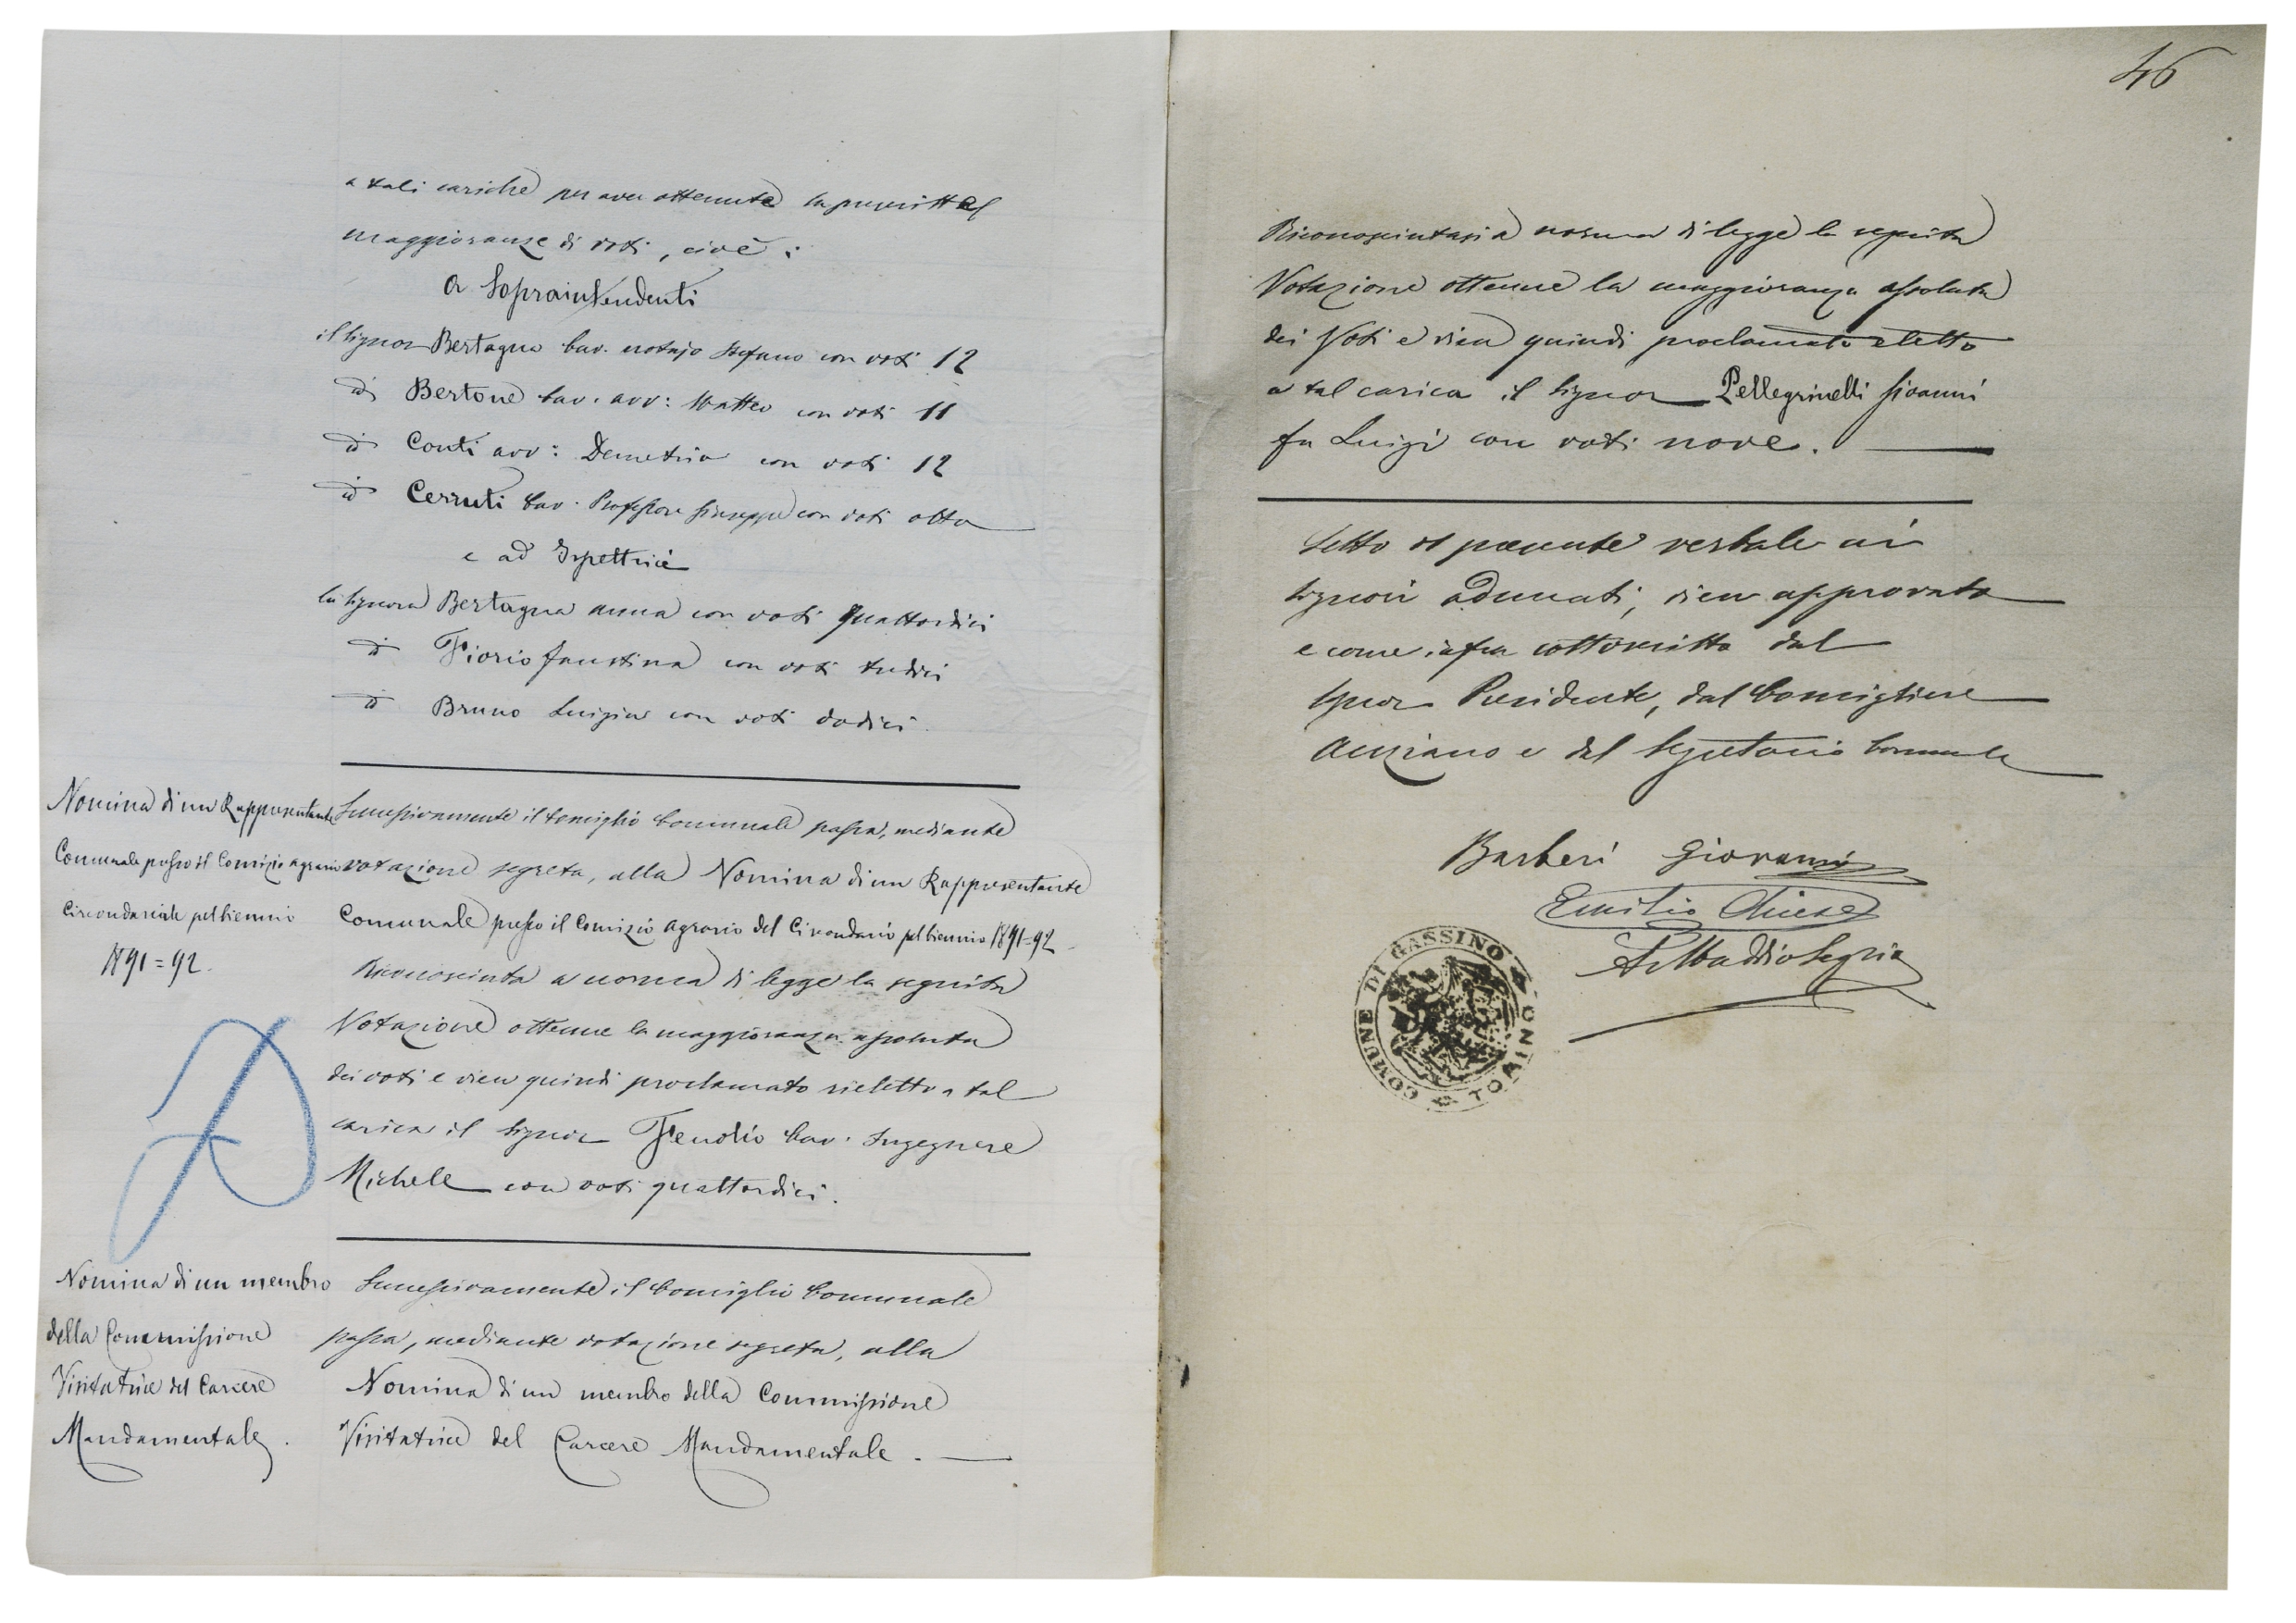 a tali cariche per aver ottenute la prescritta
maggioranze di voti, cioè:
a Sopraintendenti
il Signor Bertagna Cav. notajo Stefano con voti 12
id Bertone Cav. avv: Matteo con voti 11
id Conti avv: Demetrio con voti 12
id Cerruti Cav. Professore Giuseppe con voti otto
e ad Ispettrici
la Signora Bertagna Anna con voti quattordici
id Fiorio Faustina con voti tredici
id Bruno Luigia con voti dodici.
Nomina di un Rappresentante
Comunale presso il Comizio agrario
Circondariale pel biennio
1891=92.
Successivamente il Consiglio Comunale passa, mediante
votazione segreta, alla Nomina di un Rappresentante
Comunale presso il Comizio Agrario del Circondario pel biennio 1891=92.
Riconosciuta a norma di legge la seguita
Votazione ottenne la maggioranza assoluta
dei voti e vien quindi proclamato rieletto a tal
carica il Signor Fenolio Cav. Ingegnere
Michele con voti quattordici.
Nomina di un membro
della Commissione
Visitatrice del Carcere
Mandamentale.
Successivamente il Consiglio Comunale
passa, mediante votazione segreta, alla
Nomina di un membro della Commissione
Visitatrice del Carcere Mandamentale.
46
Riconosciutasi a norma di legge la seguita
Votazione ottenne la maggioranza assoluta
dei Voti e vien quindi proclamato eletto
a tal carica il Signor Pellegrinelli Gioanni
fu Luigi con voti nove.
Letto il presente verbale ai
Signori adunati, vien approvato
e come infra sottoscritto dal
Signor Presidente, dal Consigliere
Anziano e dal Segretario Comunale
Barberi Giovanni
Emilio Chiesa
COMUNE DI GASSINO
TORINO